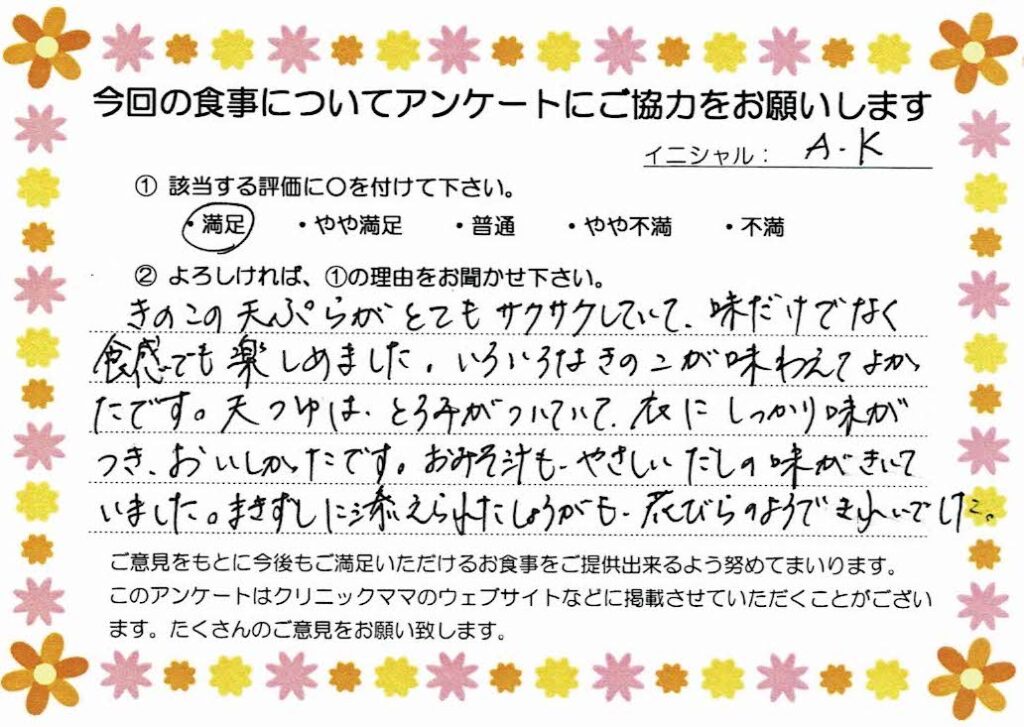 今回の食事についてアンケートにご協力をお願いします
イニシャル： A.K
① 該当する評価に〇を付けて下さい。
・満足 ・やや満足 ・普通 ・やや不満 ・不満
② よろしければ、①の理由をお聞かせ下さい。
きのこの天ぷらがとてもサクサクしていて、味だけでなく
食感でも楽しめました。いろいろなきのこが味わえてよかっ
たです。天つゆは、とろみがついていて、衣にしっかり味が
つき、おいしかったです。おみそ汁も、やさしいだしの味がきいて
いました。まきずしに添えられたしょうがも、花びらのようできれいでした。
ご意見をもとに今後もご満足いただけるお食事をご提供出来るよう努めてまいります。
このアンケートはクリニックママのウェブサイトなどに掲載させていただくことがござい
ます。たくさんのご意見をお願い致します。